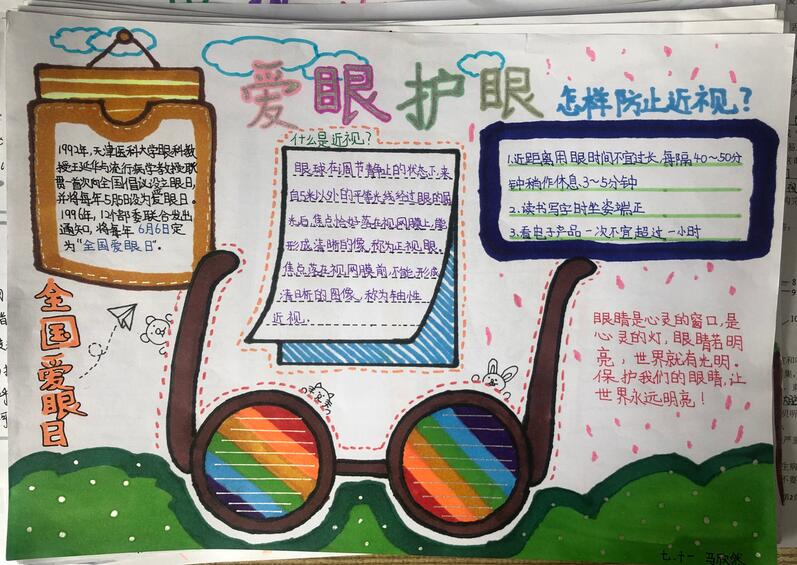 爱眼护眼
怎样防止近视？
1992年，天津医科大学眼科教
授王延华与流行病学教授耿
贯一首次向全国倡议设立眼日，
并将每年5月5日设为爱眼日。
1996年，12个部委联合发出
通知，将每年 6月6日定
为“全国爱眼日”。
什么是近视？
眼球在调节静止的状态下，来
自5米以外的平行光线经过眼的屈
光后，焦点恰好落在视网膜上，能
形成清晰的像，称为正视眼。
焦点落在视网膜前，不能形成
清晰的图像，称为轴性
近视。
1.近距离用眼时间不宜过长，每隔40～50分
钟稍作休息，3～5分钟
2.读书写字时坐姿端正
3.看电子产品一次不宜超过一小时
全国爱眼日
眼睛是心灵的窗口，是
心灵的灯，眼睛若明
亮，世界就有光明。
保护我们的眼睛，让
世界永远明亮！
七.十一 马欣然